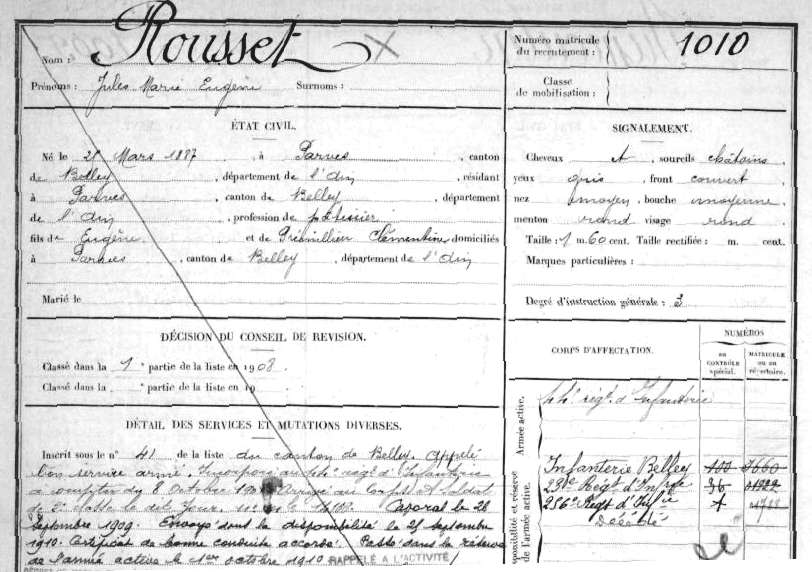 Nom : Rousset
Prénoms : Jules Marie Eugène Surnoms :
Numéro matricule du recrutement : 1010
Classe de mobilisation :
ÉTAT CIVIL.
Né le Mars 1887, à Parves, canton
de Belley, département de l'Ain, résidant
à Parves, canton de Belley, département
de l'Ain, profession de pâtissier
fils de Eugène et de Clémentine domiciliés
à Parves, canton de Belley, département de l'Ain
Marié le
SIGNALEMENT.
Cheveux et sourcils châtains
yeux gris, front couvert
nez moyen, bouche moyenne
menton rond visage rond
Taille : 1 m. 60 cent. Taille rectifiée : m. cent.
Marques particulières :
Degré d'instruction générale : 3
DÉCISION DU CONSEIL DE REVISION.
Classé dans la 1e partie de la liste en 1908.
Classé dans la partie de la liste en 19
CORPS D'AFFECTATION.
NUMÉROS
au CONTRÔLE spécial.
MATRICULE ou au répertoire.
Armée active.
régt. d'Infanterie
Disponibilité et réserve de l'armée active.
Infanterie Belley
Régt d'Infie 36
256e Régt d'Infie
Décédé
DÉTAIL DES SERVICES ET MUTATIONS DIVERSES.
Inscrit sous le n° 41 de la liste du canton de Belley. Appelé
bon service armé. Incorporé au régt d'Infanterie
à compter du 8 Octobre Arrivé au Corps et Soldat
de 2e classe le dit jour Caporal le 28
Septembre 1909. Envoyé dans la disponibilité le 25 septembre
1910. Certificat de bonne conduite accordé. Passé dans la réserve
de l'armée active le 1er octobre 1910
RAPPELÉ A L'ACTIVITÉ